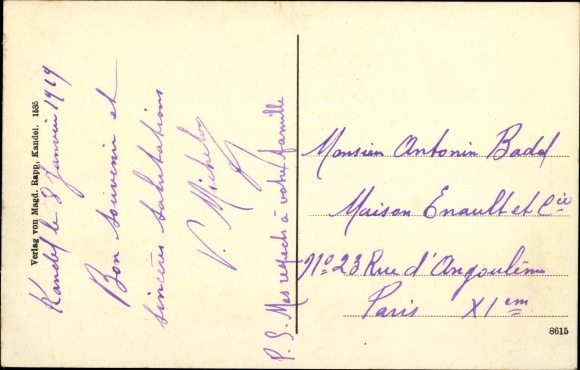 Verlag von Magd. Rapp, Kandel. 1535
Kandel le 8 Janvier 1919
Bon souvenir et
sincères salutations
V. Michelo
P.S. Mes respects à votre famille
Monsieur Antonin Badel
Maison Enault et Cie
N° 23 Rue d'Angoulême
Paris XIem
8615